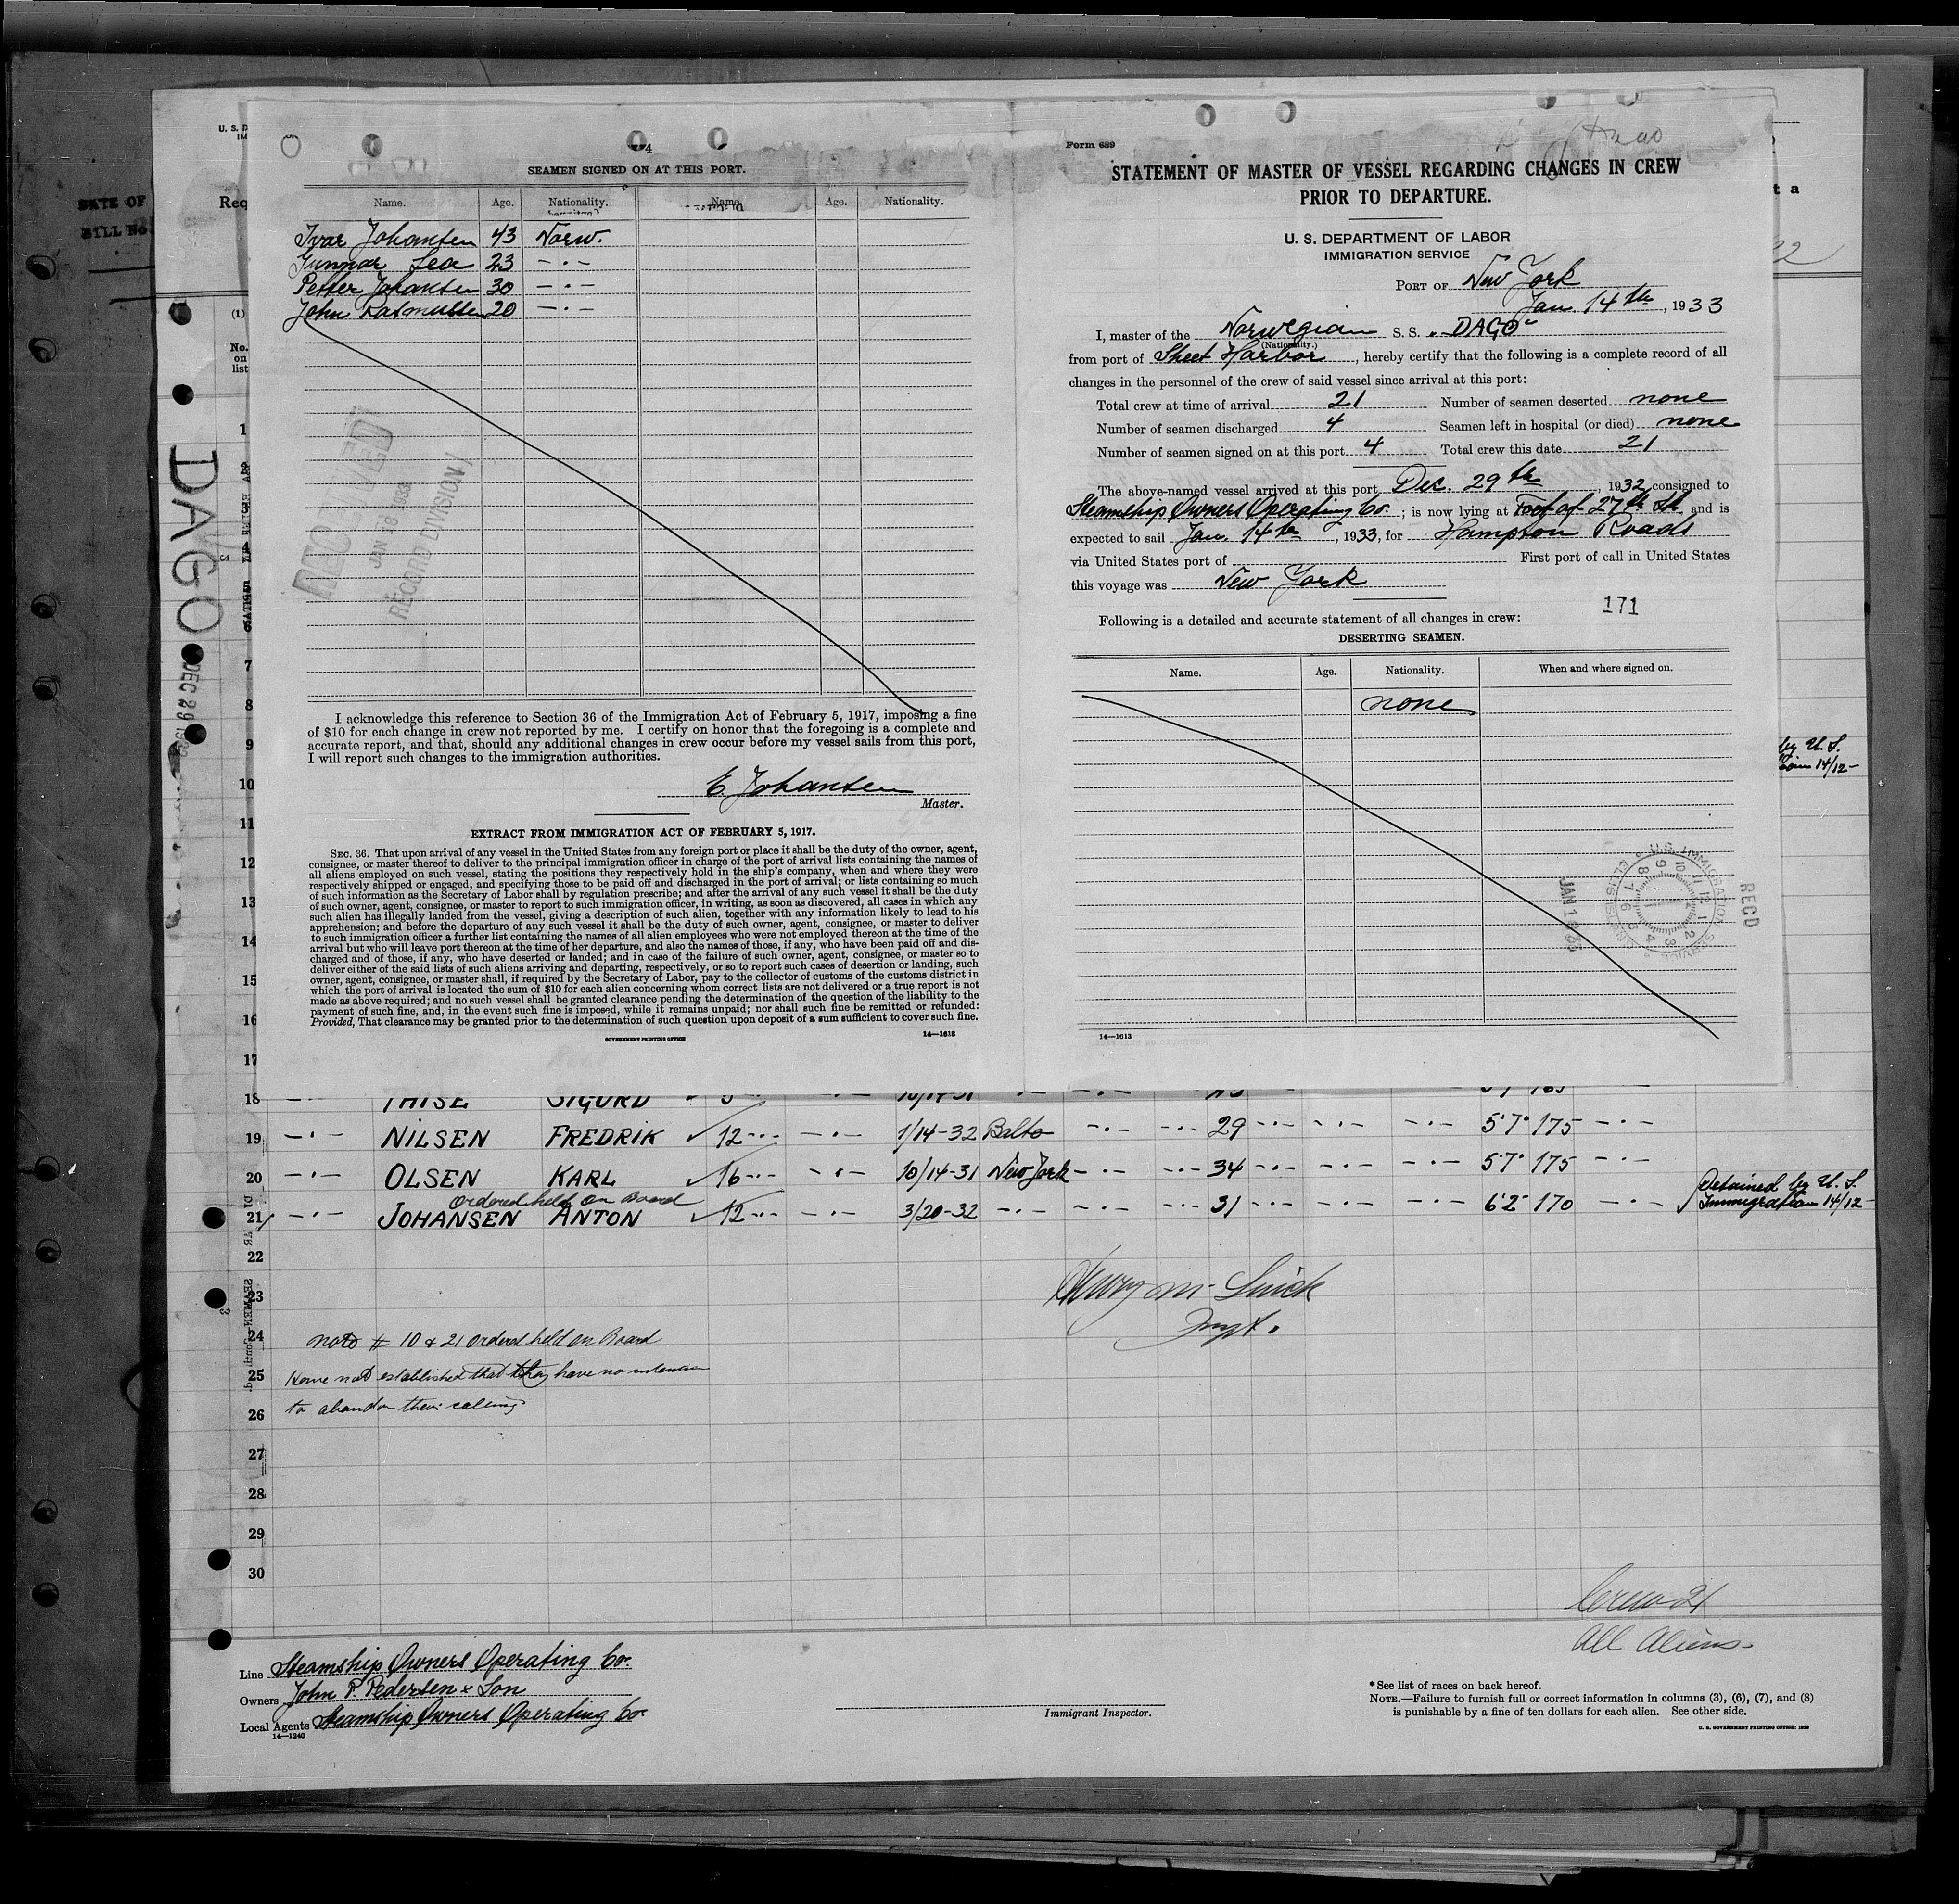 4
SEAMEN SIGNED ON AT THIS PORT.
Name. Age. Nationality. Name. Age. Nationality.
Ivar Johansen 43 Norw.
Gunnar Lea 23 — · —
Petter Johansen 30 — · —
John Rasmussen 20 — · —
RECEIVED
JAN 18 1933
RECORD DIVISION
I acknowledge this reference to Section 36 of the Immigration Act of February 5, 1917, imposing a fine
of $10 for each change in crew not reported by me. I certify on honor that the foregoing is a complete and
accurate report, and that, should any additional changes in crew occur before my vessel sails from this port,
I will report such changes to the immigration authorities.
E. Johansen
Master.
EXTRACT FROM IMMIGRATION ACT OF FEBRUARY 5, 1917.
SEC. 36. That upon arrival of any vessel in the United States from any foreign port or place it shall be the duty of the owner, agent,
consignee, or master thereof to deliver to the principal immigration officer in charge of the port of arrival lists containing the names of
all aliens employed on such vessel, stating the positions they respectively hold in the ship's company, when and where they were
respectively shipped or engaged, and specifying those to be paid off and discharged in the port of arrival; or lists containing so much
of such information as the Secretary of Labor shall by regulation prescribe; and after the arrival of any such vessel it shall be the duty
of such owner, agent, consignee, or master to report to such immigration officer, in writing, as soon as discovered, all cases in which any
such alien has illegally landed from the vessel, giving a description of such alien, together with any information likely to lead to his
apprehension; and before the departure of any such vessel it shall be the duty of such owner, agent, consignee, or master to deliver
to such immigration officer a further list containing the names of all alien employees who were not employed thereon at the time of the
arrival but who will leave port thereon at the time of her departure, and also the names of those, if any, who have been paid off and dis-
charged and of those, if any, who have deserted or landed; and in case of the failure of such owner, agent, consignee, or master so to
deliver either of the said lists of such aliens arriving and departing, respectively, or so to report such cases of desertion or landing, such
owner, agent, consignee, or master shall, if required by the Secretary of Labor, pay to the collector of customs of the customs district in
which the port of arrival is located the sum of $10 for each alien concerning whom correct lists are not delivered or a true report is not
made as above required; and no such vessel shall be granted clearance pending the determination of the question of the liability to the
payment of such fine, and, in the event such fine is imposed, while it remains unpaid; nor shall such fine be remitted or refunded:
Provided, That clearance may be granted prior to the determination of such question upon deposit of a sum sufficient to cover such fine.
GOVERNMENT PRINTING OFFICE 14—1613
Form 689
STATEMENT OF MASTER OF VESSEL REGARDING CHANGES IN CREW
PRIOR TO DEPARTURE.
U. S. DEPARTMENT OF LABOR
IMMIGRATION SERVICE
PORT OF New York
Jan. 14th, 1933
I, master of the Norwegian S. S. "DAGO"
(Nationality.)
from port of Sheet Harbor, hereby certify that the following is a complete record of all
changes in the personnel of the crew of said vessel since arrival at this port:
Total crew at time of arrival 21 Number of seamen deserted none
Number of seamen discharged 4 Seamen left in hospital (or died) none
Number of seamen signed on at this port 4 Total crew this date 21
The above-named vessel arrived at this port Dec. 29th, 1932, consigned to
Steamship Owners Operating Co.; is now lying at Foot of 27th St. and is
expected to sail Jan. 14th, 1933, for Hampton Roads
via United States port of First port of call in United States
this voyage was New York
171
Following is a detailed and accurate statement of all changes in crew:
DESERTING SEAMEN.
Name. Age. Nationality. When and where signed on.
none
RECD
14—1613
DATE OF
BILL No
U. S. D
IM
Req
(1)
No.
on
list
DAGO
DEC 29 1932
1
2
3
4
7
8
9
10
11
12
13
14
15
16
17
by U. S.
14/12-
18 — · — THISE SIGURD
19 — · — NILSEN FREDRIK ✓ 12 -·- — · — 1/14-32 Balto — · — -·- 29 -·- — · — — · — 5'7" 175 — · —
20 — · — OLSEN KARL ✓ 16 -·- — · — 10/14-31 New York — · — -·- 34 -·- — · — — · — 5'7" 175 — · —
Ordered held on Board
21 — · — JOHANSEN ANTON ✓ 12 -·- — · — 3/20-32 — · — — · — -·- 31 -·- — · — — · — 6'2" 170 — · — ✓ Detained by U. S.
Immigration 14/12-
22
23
24
25
26
27
28
29
30
Insp.
note # 10 & 21 ordered held on Board
Have not established that they have no intention
to abandon their calling
Crew 21
All Aliens
Line Steamship Owners Operating Co.
Owners John P. Pedersen & Son
Local Agents Steamship Owners Operating Co.
14—1240
Immigrant Inspector.
*See list of races on back hereof.
NOTE.—Failure to furnish full or correct information in columns (3), (6), (7), and (8)
is punishable by a fine of ten dollars for each alien. See other side.
U. S. GOVERNMENT PRINTING OFFICE: 1929